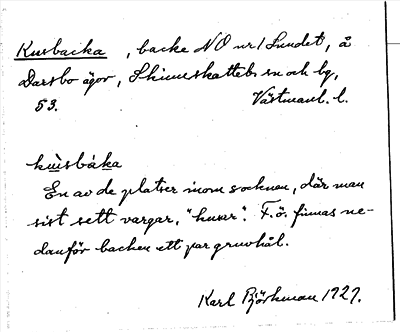 Kusbacka, backe NO nr 1 Sundet, å
Darsbo ägor, Skinnskattebs sn och bg,
53. Västmanl. l.
kùsbàka
En av de platser inom socknen, där man
sist sett vargar, "kusar". F.ö. finnas ne-
danför backen ett par gruvhål.
Karl Björkman 1927.